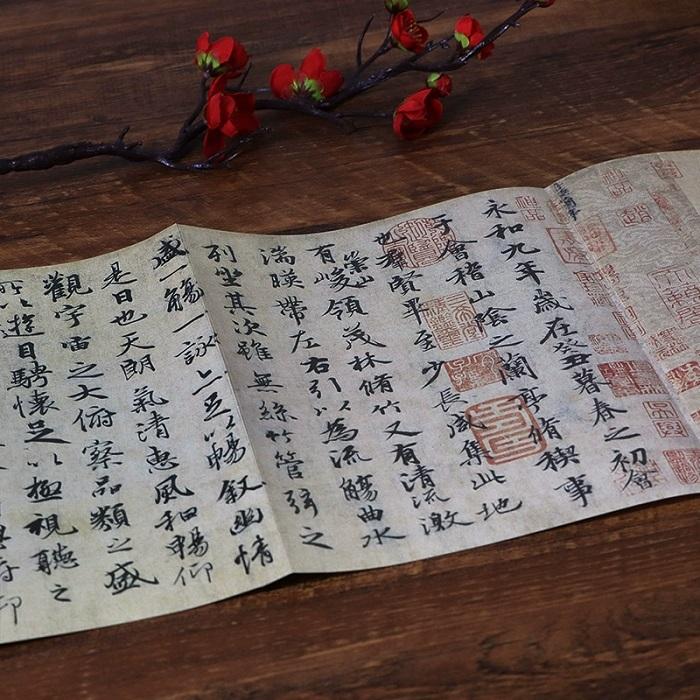 永和九年歲在癸丑暮春之初會
于會稽山陰之蘭亭脩稧事
也羣賢畢至少長咸集此地
有崇山峻領茂林脩竹又有清流激
湍暎帶左右引以為流觴曲水
列坐其次雖無絲竹管弦之
盛一觴一詠亦足以暢敘幽情
是日也天朗氣清惠風和暢仰
觀宇宙之大俯察品類之盛
所以遊目騁懷足以極視聽之
仰